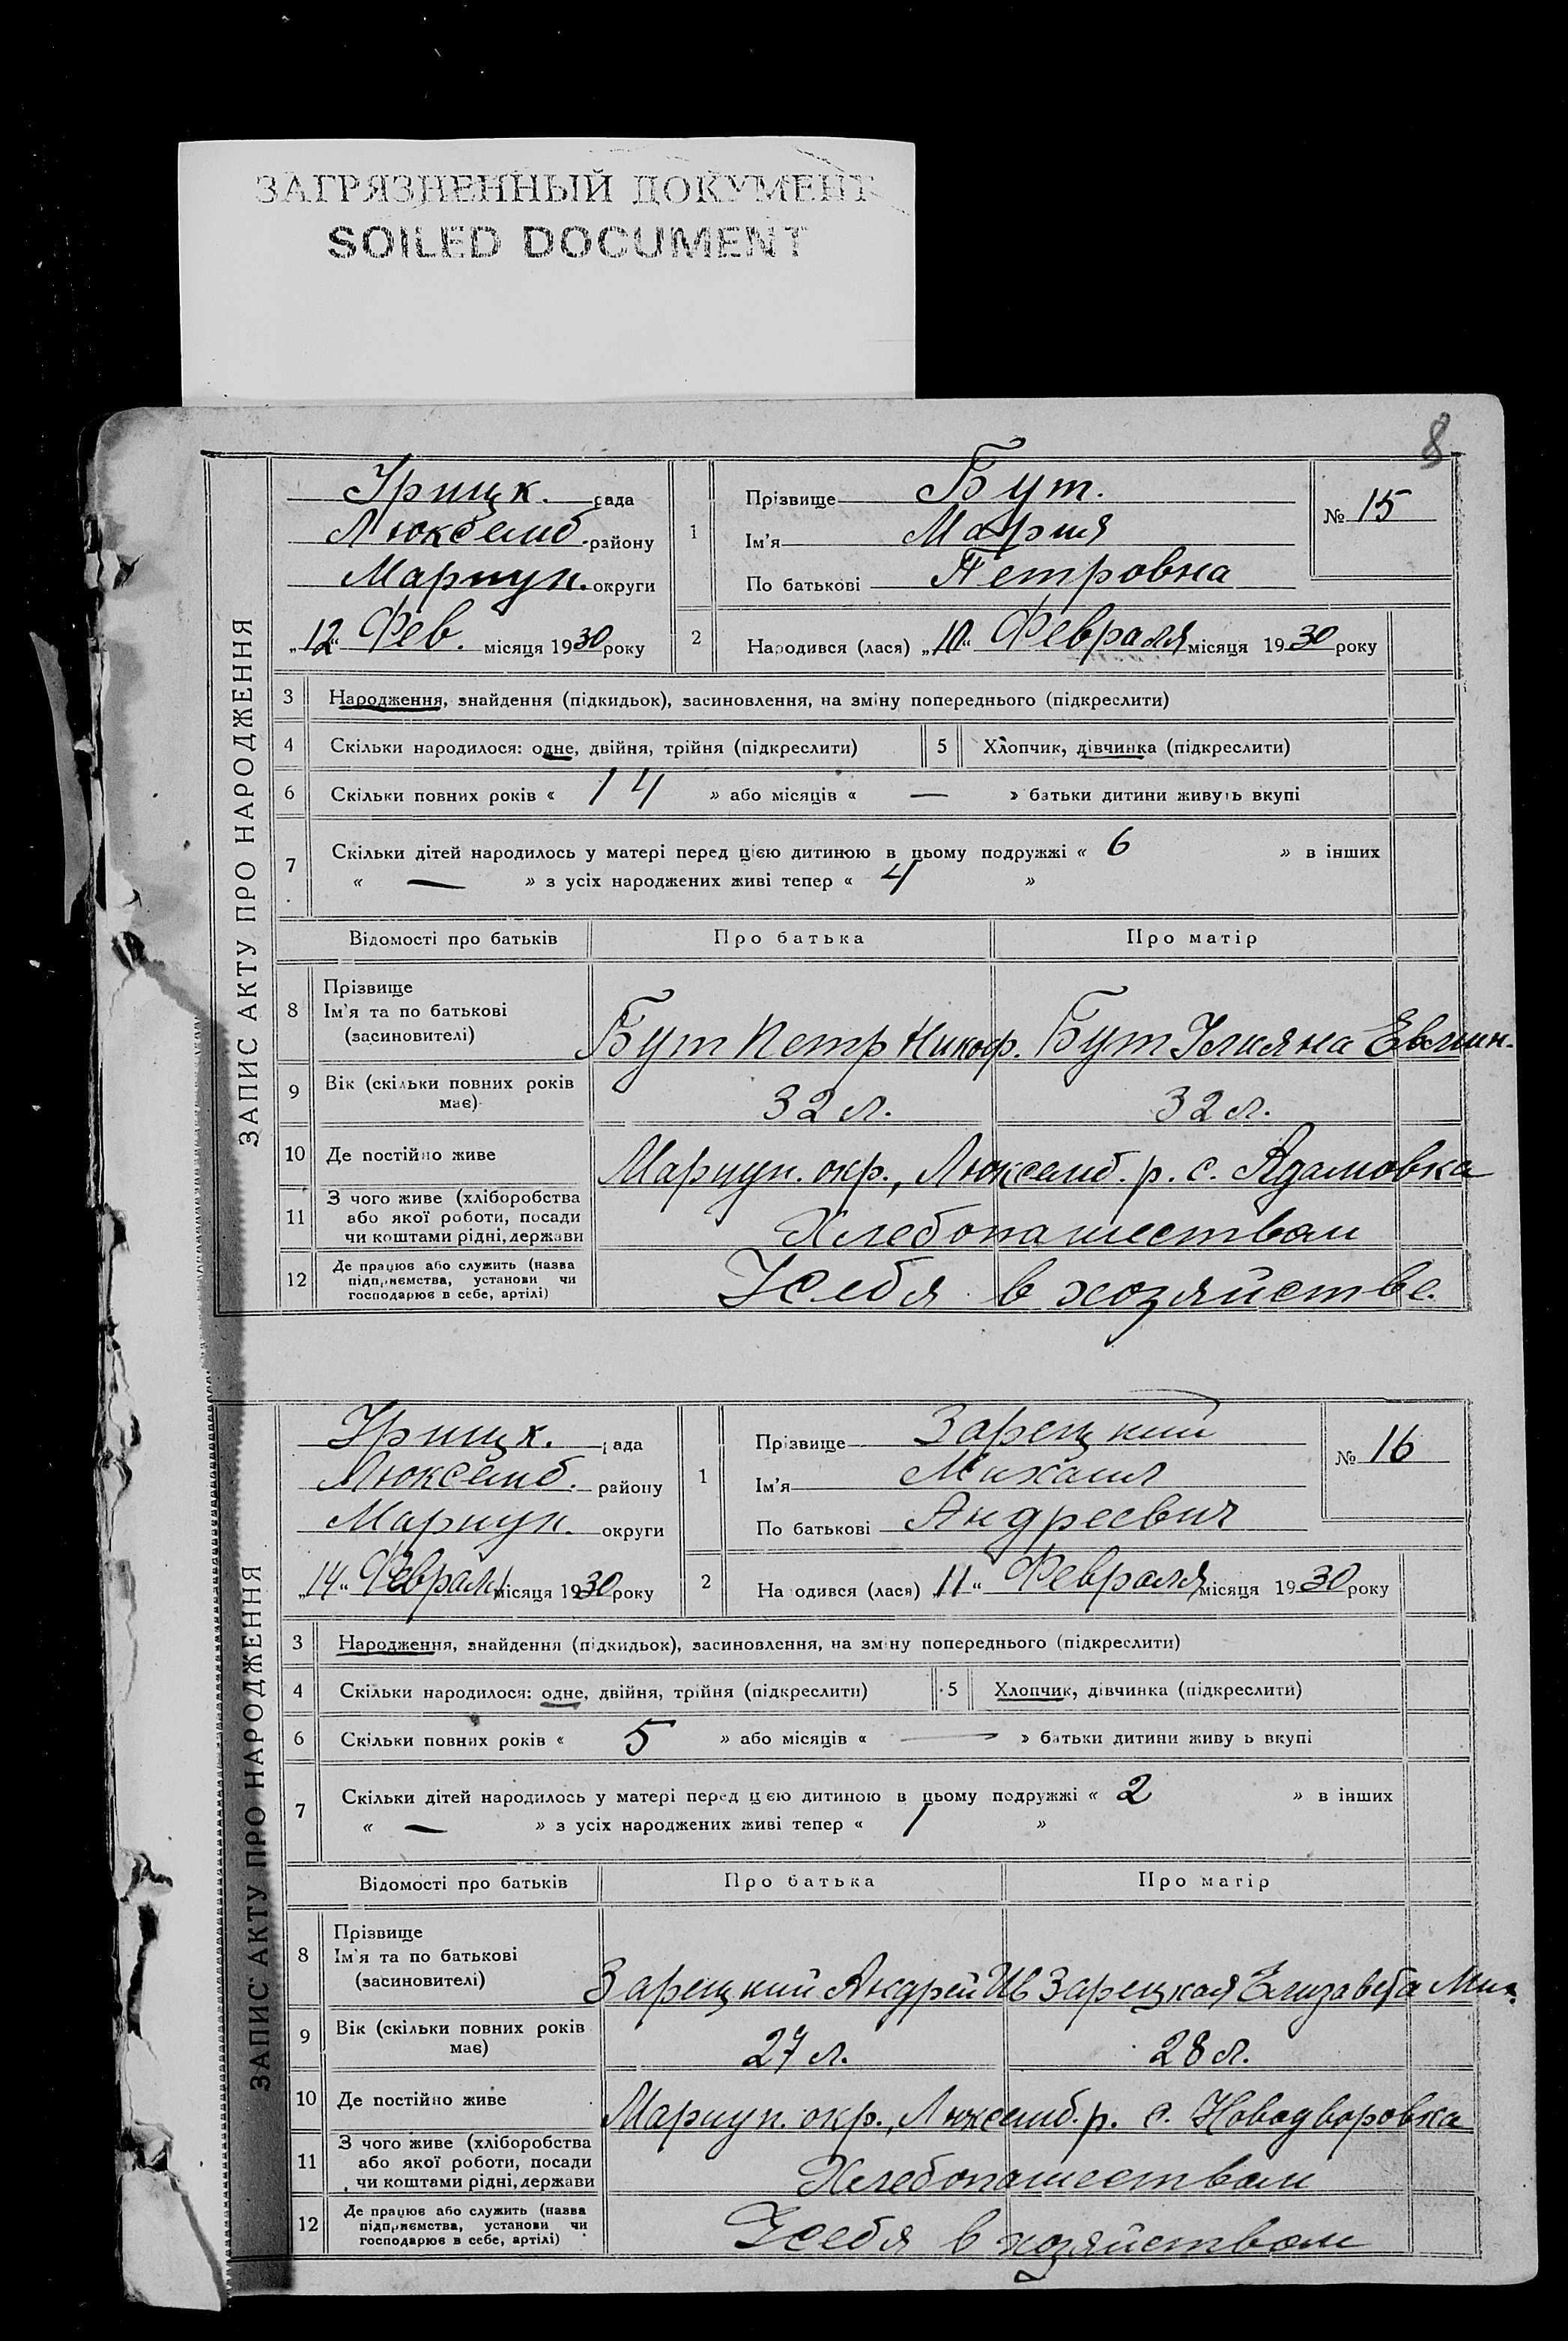 ЗАГРЯЗНЕННЫЙ ДОКУМЕНТ
SOILED DOCUMENT
8
ЗАПИС АКТУ ПРО НАРОДЖЕННЯ
Урицк. рада
Люксемб. району
Мариуп. округи
„12“ Фев. місяця 1930 року
1
Прізвище Бут.
Ім’я Мария
По батькові Петровна
№ 15
2 Народився (лася) „10“ Февраля місяця 1930 року
3 Народження, знайдення (підкидьок), засиновлення, на зміну попереднього (підкреслити)
4 Скільки народилося: одне, двійня, трійня (підкреслити) 5 Хлопчик, дівчинка (підкреслити)
6 Скільки повних років « 14 » або місяців « — » батьки дитини живуть вкупі
7 Скільки дітей народилось у матері перед цією дитиною в цьому подружжі « 6 » в інших
« — » з усіх народжених живі тепер « 4 »
Відомості про батьків Про батька Про матір
8 Прізвище
Ім’я та по батькові
(засиновителі)
Бут Петр Никоф. Бут Ульяна
9 Вік (скільки повних років
має)
32 л. 32 л.
10 Де постійно живе Мариуп. окр., Люксемб. р. с. Адамовка
11 З чого живе (хліборобства
або якої роботи, посади
чи коштами рідні, держави
Хлебопашеством
12 Де працює або служить (назва
підприємства, установи чи
господарює в себе, артілі)
У себя в хозяйстве.
ЗАПИС АКТУ ПРО НАРОДЖЕННЯ
Урицк. рада
Люксемб. району
Мариуп. округи
„14“ Февраля місяця 1930 року
1
Прізвище Зарецкий
Ім’я Михаил
По батькові Андреевич
№ 16
2 Народився (лася) „11“ Февраля місяця 1930 року
3 Народження, знайдення (підкидьок), засиновлення, на зміну попереднього (підкреслити)
4 Скільки народилося: одне, двійня, трійня (підкреслити) 5 Хлопчик, дівчинка (підкреслити)
6 Скільки повних років « 5 » або місяців « — » батьки дитини живуть вкупі
7 Скільки дітей народилось у матері перед цією дитиною в цьому подружжі « 2 » в інших
« — » з усіх народжених живі тепер « 1 »
Відомості про батьків Про батька Про матір
8 Прізвище
Ім’я та по батькові
(засиновителі)
Зарецкий Андрей Ив Зарецкая Елизавета Мих.
9 Вік (скільки повних років
має)
27 л. 28 л.
10 Де постійно живе Мариуп. окр., Люксемб. р. с. Новодворовка
11 З чого живе (хліборобства
або якої роботи, посади
чи коштами рідні, держави
Хлебопашеством
12 Де працює або служить (назва
підприємства, установи чи
господарює в себе, артілі)
У себя в хозяйством